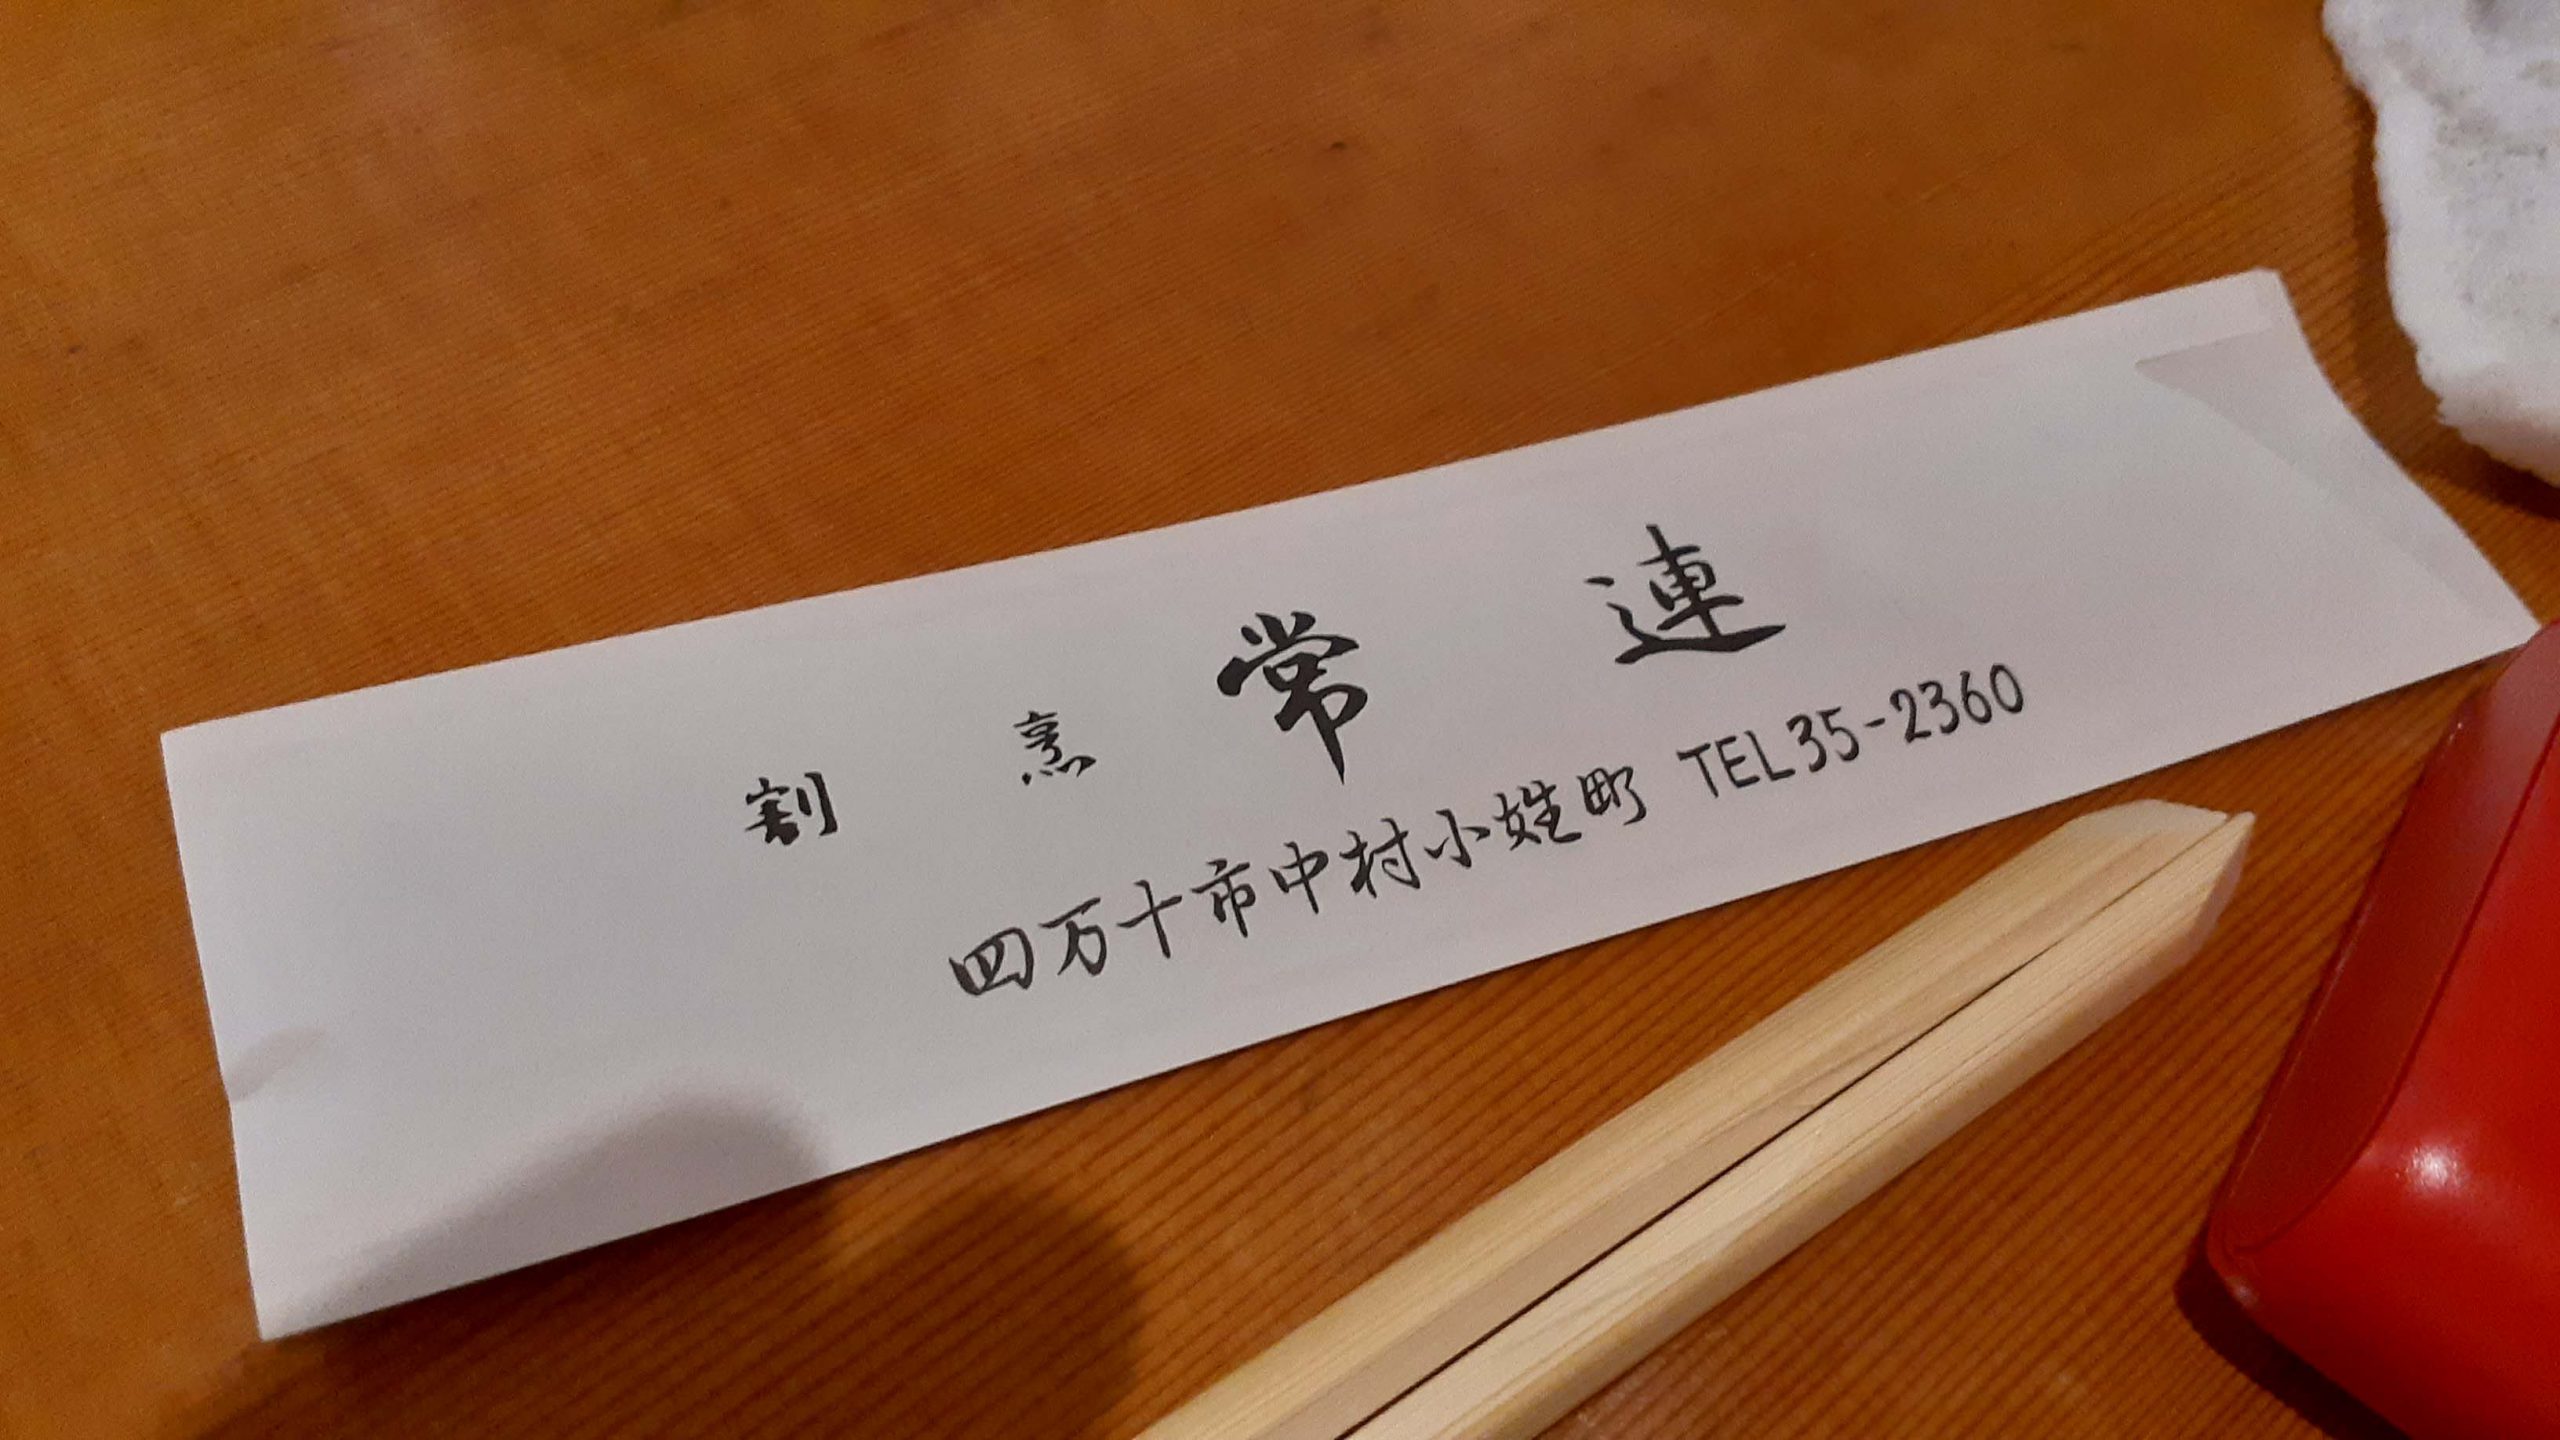 割烹常連
四万十市中村小姓町 TEL35-2360